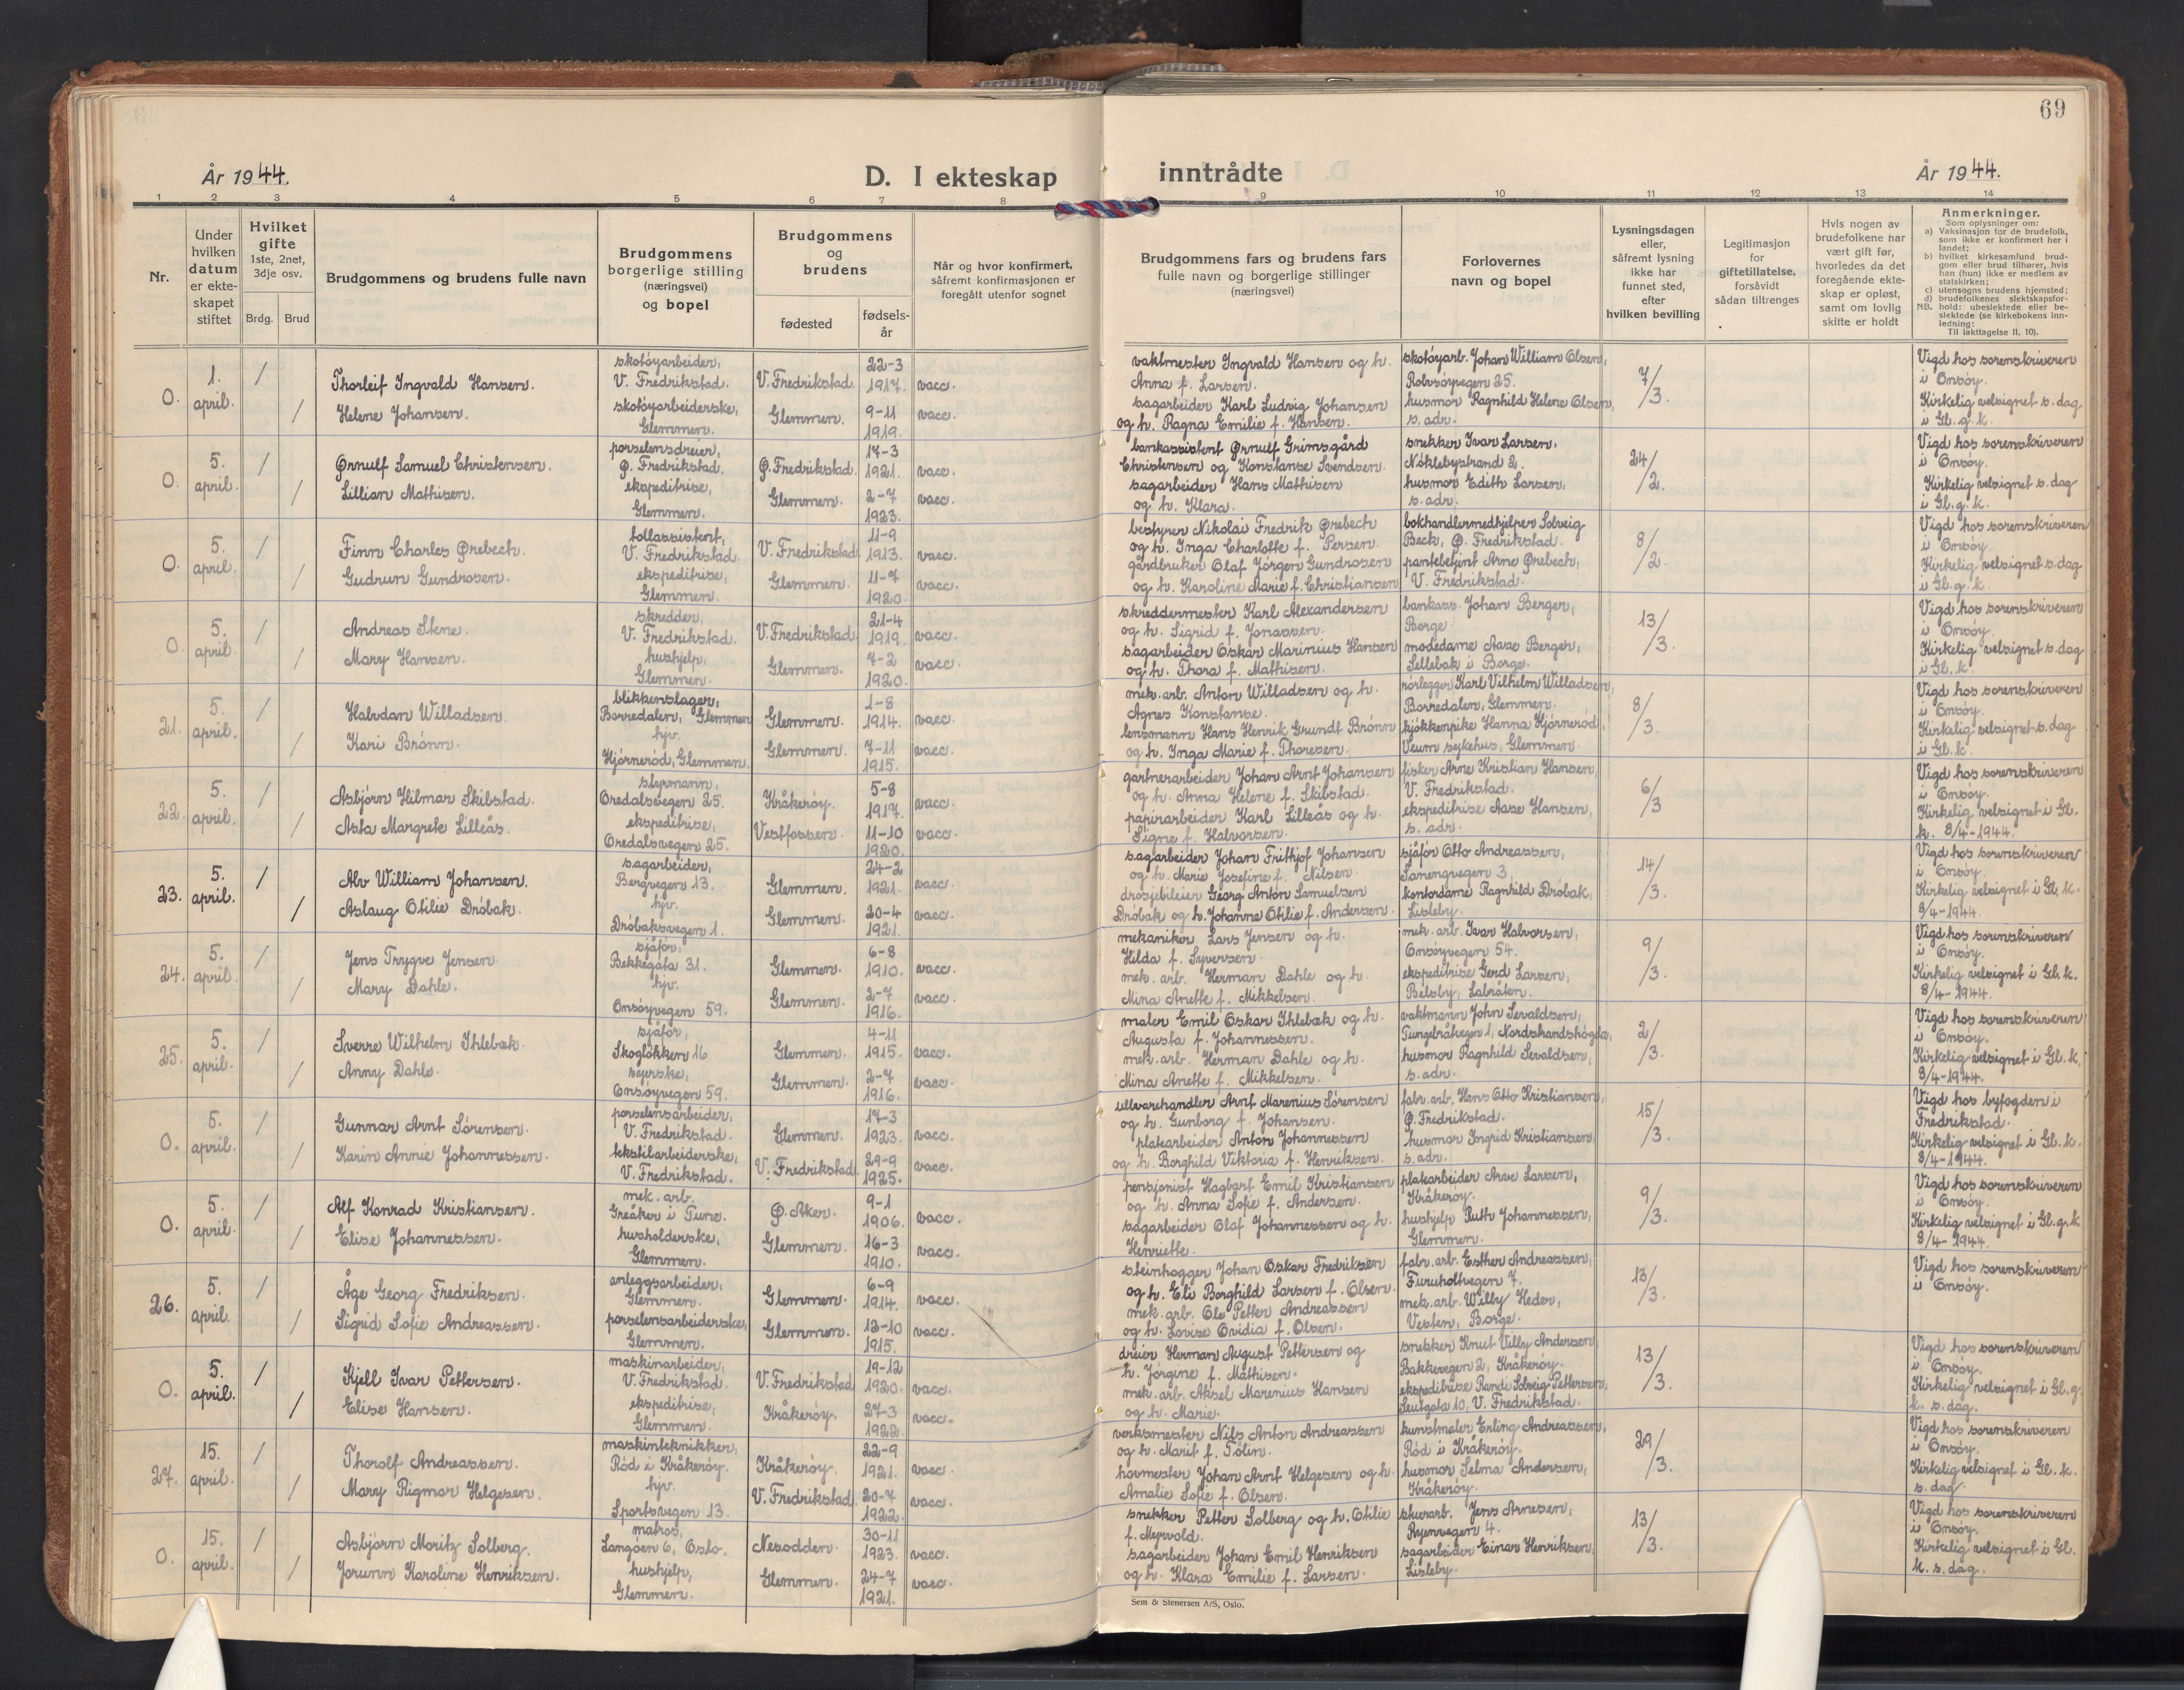 69
År 1944.
D. I ekteskap inntrådte
År 1944.
1 2 3 4 5 6 7 8 9 10 11 12 13 14
Nr.
Under hvilken datum er ekteskapet stiftet
Hvilket gifte 1ste, 2net, 3dje osv.
Brdg. Brud
Brudgommens og brudens fulle navn
Brudgommens borgerlige stilling (næringsvei) og bopel
Brudgommens og brudens
fødested
fødselsår
Når og hvor konfirmert, såfremt konfirmasjonen er foregått utenfor sognet
Brudgommens fars og brudens fars fulle navn og borgerlige stillinger (næringsvei)
Forlovernes navn og bopel
Lysningsdagen eller, såfremt lysning ikke har funnet sted, efter hvilken bevilling
Legitimasjon for giftetillatelse, forsåvidt sådan tiltrenges
Hvis nogen av brudefolkene har vært gift før, hvorledes da det foregående ekteskap er opløst, samt om lovlig skifte er holdt
Anmerkninger.
Som oplysninger om:
a) Vaksinasjon for de brudefolk, som ikke er konfirmert her i landet;
b) hvilket kirkesamfund brudgom eller brud tilhører, hvis han (hun) ikke er medlem av statskirken;
c) utensogns brudens hjemsted;
d) brudefolkenes slektskapsforhold: ubeslektede eller beslektede (se kirkebokens innledning:
NB. Til iakttagelse II. 10).
0. 1. april. / Thorleif Ingvald Hansen. skotøyarbeider, V. Fredrikstad. V. Fredrikstad. 22-3 1917. vacc. vaktmester Ingvald Hansen og h. Anna f. Larsen. skotøyarb. Johan William Olsen, Rolvsøyvegen 25. 7/3. Vigd hos sorenskriveren i Onsøy.
/ Helene Johansen. skotøyarbeiderske, Glemmen. Glemmen. 9-11 1919. vacc. sagarbeider Karl Ludvig Johansen og h. Ragna Emilie f. Hansen. husmor Ragnhild Helene Olsen, s. adr. Kirkelig velsignet s. dag i Gl. g. k.
0. 5. april. / Ørnulf Samuel Christensen. porselensdreier, Ø. Fredrikstad. Ø. Fredrikstad. 17-3 1921. vacc. bankassistent Ørnulf Grimsgård Christensen og Konstanse Svendsen. snekker Ivar Larsen, Nøklebystrand 2. 24/2. Vigd hos sorenskriveren i Onsøy.
/ Lillian Mathisen. ekspeditrise, Glemmen. Glemmen. 2-7 1923. vacc. sagarbeider Hans Mathisen og h. Klara. husmor Edith Larsen, s. adr. Kirkelig velsignet s. dag i Gl. g. k.
0. 5. april. / Finn Charles Ørebech. tollassistent, V. Fredrikstad. V. Fredrikstad. 11-9 1913. vacc. bestyrer Nikolai Fredrik Ørebech og h. Inga Charlotte f. Persen. bokhandlermedhjelper Solveig Beck, Ø. Fredrikstad. 8/2. Vigd hos sorenskriveren i Onsøy.
/ Gudrun Gundrosen. ekspeditrise, Glemmen. Glemmen. 11-7 1920. vacc. gårdbruker Olaf Jørgen Gundrosen og h. Karoline Marie f. Christiansen pantebetjent Arne Ørebech, V. Fredrikstad. Kirkelig velsignet s. dag i Gl. g. k.
0. 5. april. / Andreas Stene. skredder, V. Fredrikstad. V. Fredrikstad. 21-4 1919. vacc. skreddermester Karl Alexandersen og h. Sigrid f. Jonassen. bankass. Johan Berger, Borge. 13/3. Vigd hos sorenskriveren i Onsøy.
/ Mary Hansen. hushjelp, Glemmen. Glemmen. 7-2 1920. vacc. sagarbeider Oskar Marinius Hansen og h. Thora f. Mathisen. modedame Aase Berger, Sellebak i Borge. Kirkelig velsignet s. dag i Gl. k.
21. 5. april. / Halvdan Willadsen. blikkenslager, Borredalen, Glemmen Glemmen. 1-8 1914. vacc. mek. arb. Anton Willadsen og h. Agnes Konstanse. rørlegger Karl Vilhelm Willadsen, Borredalen, Glemmen. 8/3. Vigd hos sorenskriveren i Onsøy.
/ Kari Brönn. hjv. Hjørnerød, Glemmen. Glemmen. 7-11 1915. vacc. lensmann Hans Henrik Grundt Brönn og h. Inga Marie f. Thoresen. kjøkkenpike Hanna Hjørnerød, Veum sykehus, Glemmen. Kirkelig velsignet s. dag i Gl. k.
22. 5. april. / Asbjørn Hilmar Skibstad. styrmann, Oredalsvegen 25. Kråkerøy. 5-8 1917. vacc. gartnerarbeider Johan Arnt Johansen og h. Anna Helene f. Skibstad. fisker Arne Kristian Hansen, V. Fredrikstad. 6/3 Vigd hos sorenskriveren i Onsøy.
/ Asta Margrete Lilleås. ekspeditrise, Oredalsvegen 25. Vestfossen. 11-10 1920. vacc. papirarbeider Karl Lilleås og h. Signe f. Halvorsen. ekspeditrise Aase Hansen, s. adr. Kirkelig velsignet i Gl. k. 8/4-1944.
23. 5. april. / Alv William Johansen. sagarbeider, Bergvegen 13. Glemmen. 24-2 1921. vacc. sagarbeider Johan Frithjof Johansen og h. Marie Josefine f. Nilsen. sjåfør Otto Andreassen, Sanengvegen 3. 14/3. Vigd hos sorenskriveren i Onsøy.
/ Aslaug Otilie Drøbak. hjv. Drøbaksvegen 1. Glemmen. 20-4 1921. vacc. drosjebileier Georg Anton Samuelsen Drøbak og h. Johanne Otilie f. Andersen. kontordame Ragnhild Drøbak, Lisleby. Kirkelig velsignet i Gl. k. 8/4-1944.
24. 5. april. / Jens Trygve Jensen. sjåfør, Bekkegata 31. Glemmen. 6-8 1910. vacc. mekaniker Lars Jensen og h. Hilda f. Syversen. mek. arb. Ivar Halvorsen, Onsøyvegen 54. 9/3. Vigd hos sorenskriveren i Onsøy.
/ Mary Dahle. hjv. Onsøyvegen 59. Glemmen. 2-7 1916. vacc. mek. arb. Herman Dahle og h. Mina Anette f. Mikkelsen. ekspeditrise Gerd Larsen, Kirkelig velsignet i Gl. k. 8/4-1944.
25. 5. april. / Sverre Wilhelm Ihlebæk. sjåfør, Skogløkken 16 Glemmen. 4-11 1915. vacc. maler Emil Oskar Ihlebæk og h. Augusta f. Johannessen. vaktmann John Sevaldsen, 2/3. Vigd hos sorenskriveren i Onsøy.
/ Anny Dahle. syerske, Onsøyvegen 59. Glemmen. 2-7 1916. vacc. mek. arb. Herman Dahle og h. Mina Anette f. Mikkelsen. husmor Ragnhild Sevaldsen, s. adr. Kirkelig velsignet i Gl. k. 8/4-1944.
0. 5. april. / Gunnar Arnt Sørensen. porselensarbeider, V. Fredrikstad. Glemmen. 17-3 1923. vacc. ullvarehandler Arnt Marenius Sørensen og h. Gunborg f. Johansen. fabr. arb. Hans Otto Kristiansen, Ø. Fredrikstad. 15/3. Vigd hos byfogden i Fredrikstad.
/ Karin Annie Johannessen. tekstilarbeiderske, V. Fredrikstad. V. Fredrikstad. 29-9 1925. vacc. platearbeider Anton Johannessen og h. Borghild Viktoria f. Henriksen. husmor Ingrid Kristiansen, s. adr. Kirkelig velsignet i Gl. k. 8/4-1944.
0. 5. april. / Alf Konrad Kristiansen. mek. arb. Greåker i Tune. Ø. Aker. 9-1 1906. vacc. pensjonist Hagbart Emil Kristiansen og h. Anna Sofie f. Andersen. platearbeider Arve Larsen, Kråkerøy. 9/3. Vigd hos sorenskriveren i Onsøy.
/ Elise Johannessen. husholderske, Glemmen. Glemmen. 16-3 1910. vacc. sagarbeider Olaf Johannessen og h. Henriette. hushjelp Ruth Johannessen, Glemmen. Kirkelig velsignet i Gl. g. k. 8/4-1944.
26. 5. april. / Åge Georg Fredriksen. anleggsarbeider, Glemmen. Glemmen. 6-9 1914. vacc. steinhogger Johan Oskar Fredriksen og h. Eli Borghild Larsen f. Olsen. fabr. arb. Esther Andreassen, Furuholtvegen 7. 13/3. Vigd hos sorenskriveren i Onsøy.
/ Sigrid Sofie Andreassen. porselensarbeiderske, Glemmen. Glemmen. 13-10 1915. vacc. mek. arb. Ole Petter Andreassen og h. Lovise Ovidia f. Olsen. mek. arb. Willy Heder, Vesten, Borge.
0. 5. april. / Kjell Ivar Pettersen. maskinarbeider, V. Fredrikstad. V. Fredrikstad 19-12 1920. vacc. dreier Herman August Pettersen og h. Jørgine f. Mathisen. snekker Knut Villy Andersen, Bakkevegen 2, Kråkerøy. 13/3. Vigd hos sorenskriveren i Onsøy.
/ Elise Hansen. ekspeditrise, Glemmen. Kråkerøy. 27-3 1922. vacc. mek. arb. Aksel Marenius Hansen og h. Marie. ekspeditrise Randi Solveig Pettersen, 10, V. Fredrikstad. Kirkelig velsignet i Gl. g. k. s. dag.
27. 15. april. / Thorolf Andreassen. maskintekniker, Rød i Kråkerøy. Kråkerøy. 22-9 1921. vacc. verksmester Nils Anton Andreassen og h. Marit f. Tølin. kunstmaler Erling Andreassen, Rød i Kråkerøy. 29/3. Vigd hos sorenskriveren i Onsøy.
/ Mary Rigmor Helgesen. hjv. Sportsvegen 13. V. Fredrikstad. 20-7 1922. vacc. hovmester Johan Arnt Helgesen og h. Amalie Sofie f. Olsen. husmor Selma Andersen, Kråkerøy. Kirkelig velsignet i Gl. k. s. dag.
0. 15. april. / Asbjørn Moritz Solberg. matros, Langøen 6, Oslo. Nesodden. 30-11 1923. vacc. snekker Petter Solberg og h. Otilie f. Myrvold. skurarb. Jens Arnesen, Ryenvegen 4. 13/3. Vigd hos sorenskriveren i Onsøy.
/ Jorunn Karoline Henriksen. hushjelp, Glemmen. Glemmen. 24-7 1921. vacc. sagarbeider Johan Emil Henriksen og h. Klara Emilie f. Larsen. sagarbeider Einar Henriksen, Lisleby. Kirkelig velsignet i Gl. k. s. dag.
Sem & Stenersen A/S, Oslo.